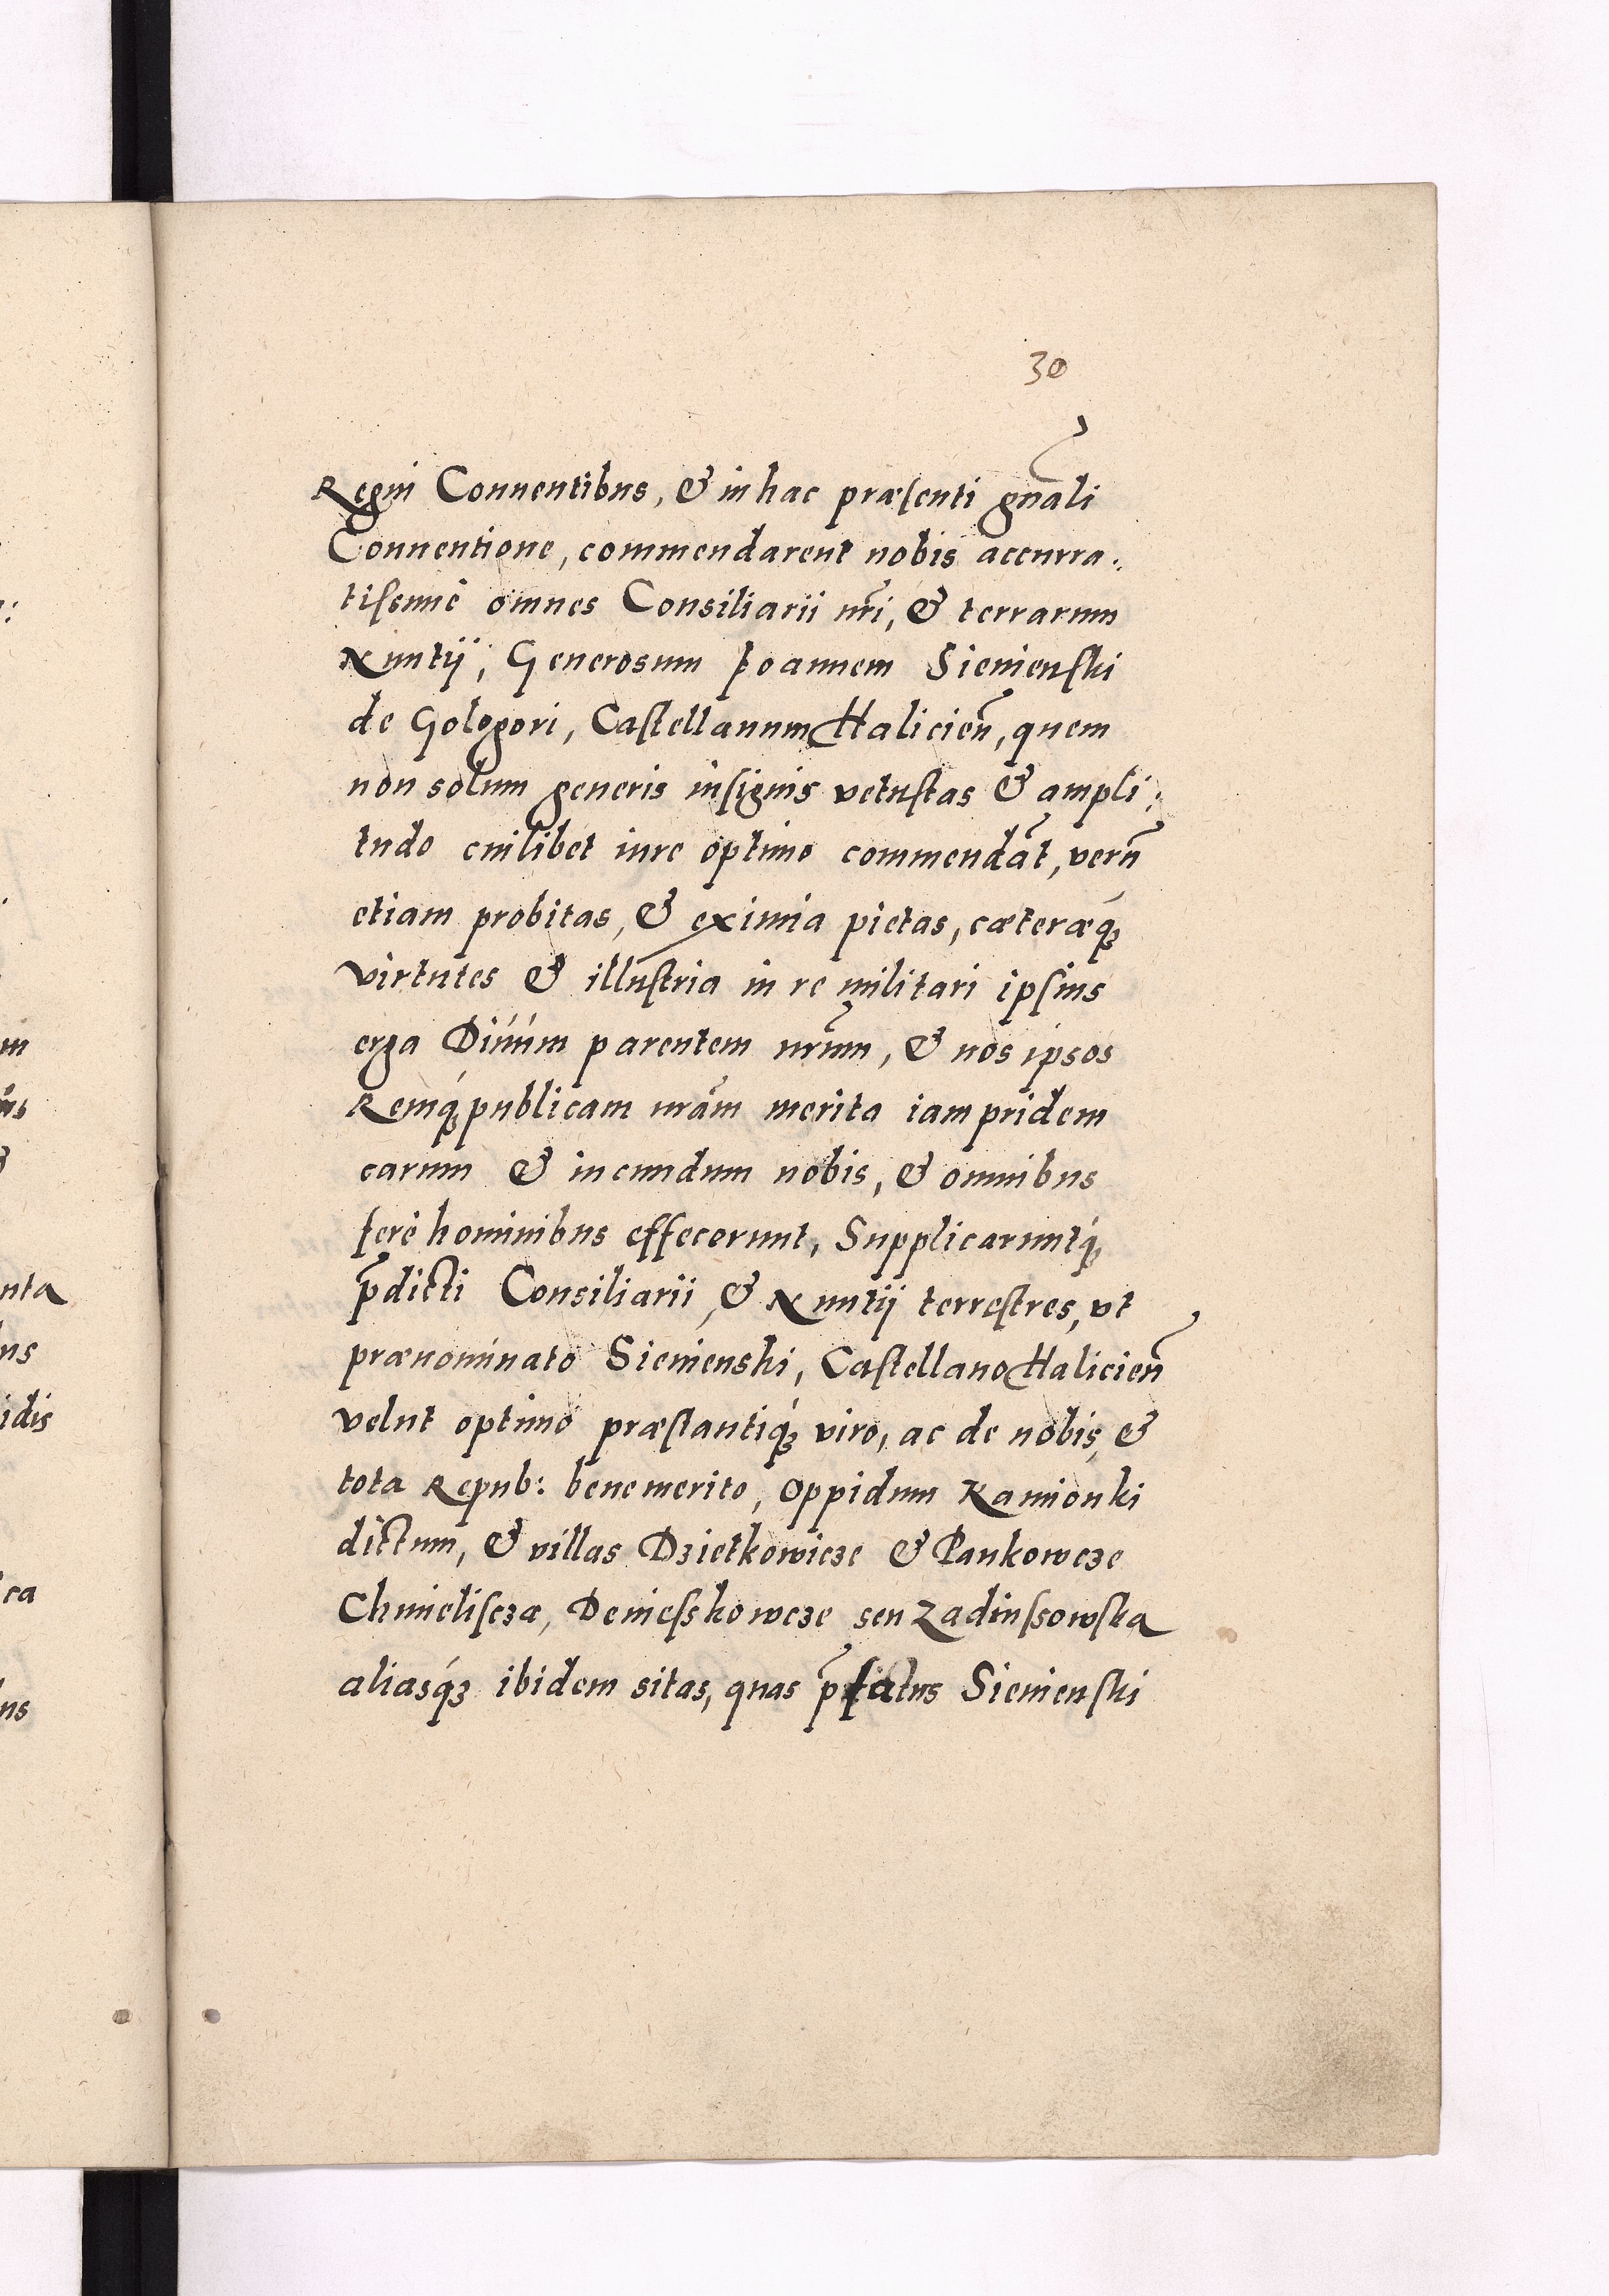 30
Regni Conuentibus, & in hac præſenti gnãli
Conuentione, commendarent nobis accurra:
tiſsimè omnes Consiliarii nr̃i, & terrarum
Nuntij, Generosum Ioannem Sienienſki
de Gologori, Caſtellanum Halicieñ, quem
non solum generis inſignis vetuſtas & ampli:
tudo cuilibet iure optimo commendãt, verũ
etiam probitas, & eximia pietas, cæteræq́ꝫ
virtutes & illuſtria in re militari ipſius
erga Diuúm parentem nr̃um, & nos ipsos
Remq́ꝫ publicam nrãm merita iam pridem
carum & iucundum nobis, & omnibus
ferè hominibus effecerunt, Supplicaruntq́ꝫ
p̃dicti Consiliarii, & Nuntij terreſtres, vt
prænominato Sienienski, Caſtellano Halicieñ
velut optimo præſtantiq́ꝫ viro, ac de nobis, &
tota Repub: benemerito, oppidum Kamionki
dictum, & villas Dzietkowicze & Pankowcze
Chmieliſczæ, Denieſskowcze seu Zadiuſsowſka
aliasq́ꝫ ibidem sitas, quas p̃fatus Sienienſki